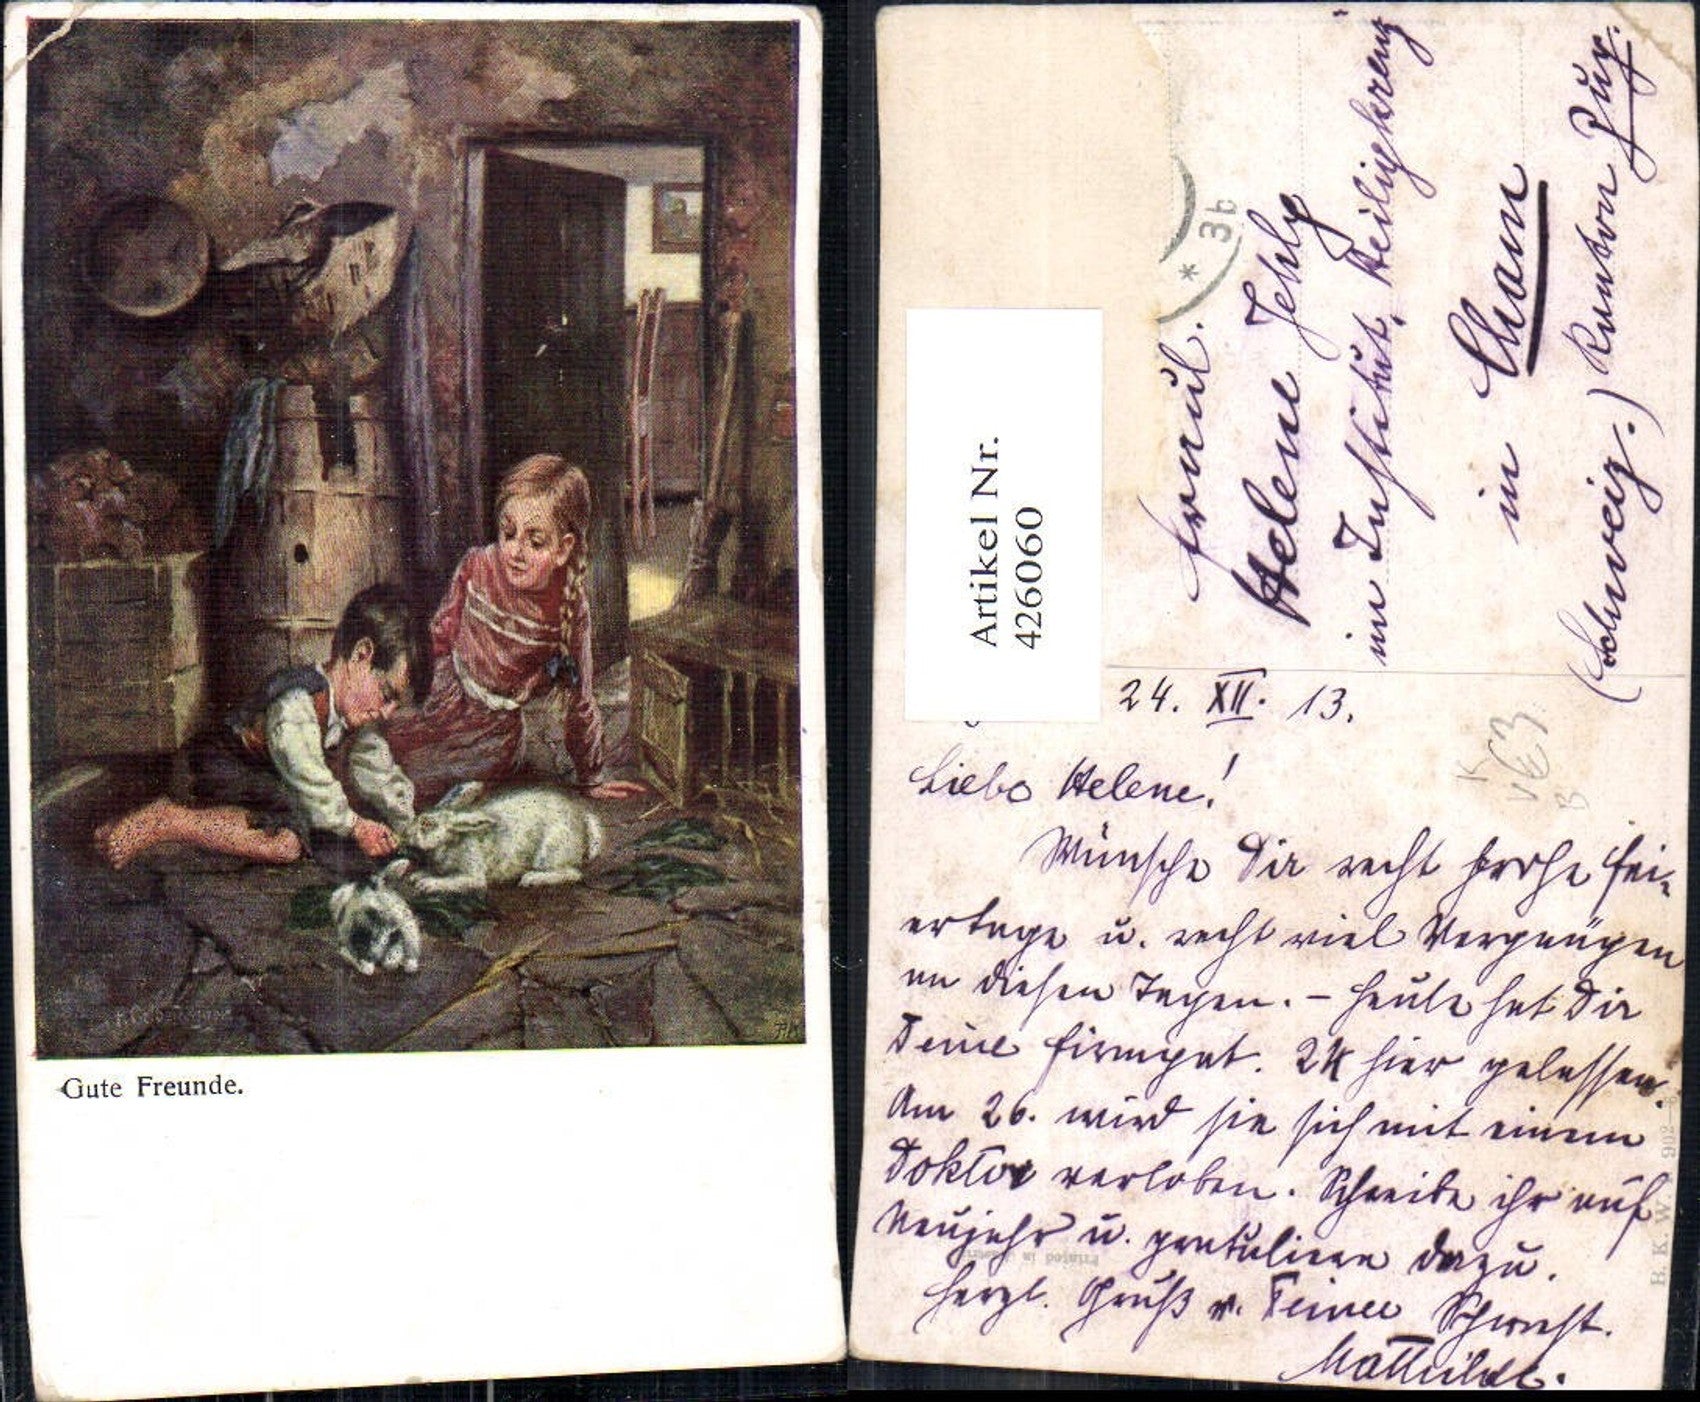 Gute Freunde.
Artikel Nr.
426060
3b
Fräul.
Helene Jehly
im Institut, Heiligkreuz
in Cham
(Schweiz.) Kanton Zug.
24. XII. 13.
Liebe Helene!
Wünsche Dir recht frohe Fei-
ertage u. recht viel Vergnügen
an diesen Tagen. – Heute hat Dir
Deine Firmpat. 2K hier gelassen.
Am 26. wird sie sich mit einem
Doktor verloben. Schreibe ihr auf
Neujahr u. gratuliere dazu.
Herzl. Gruß v. Deiner Schwest.
Mathilde.
B. K. W. I. 902
Printed in Austria